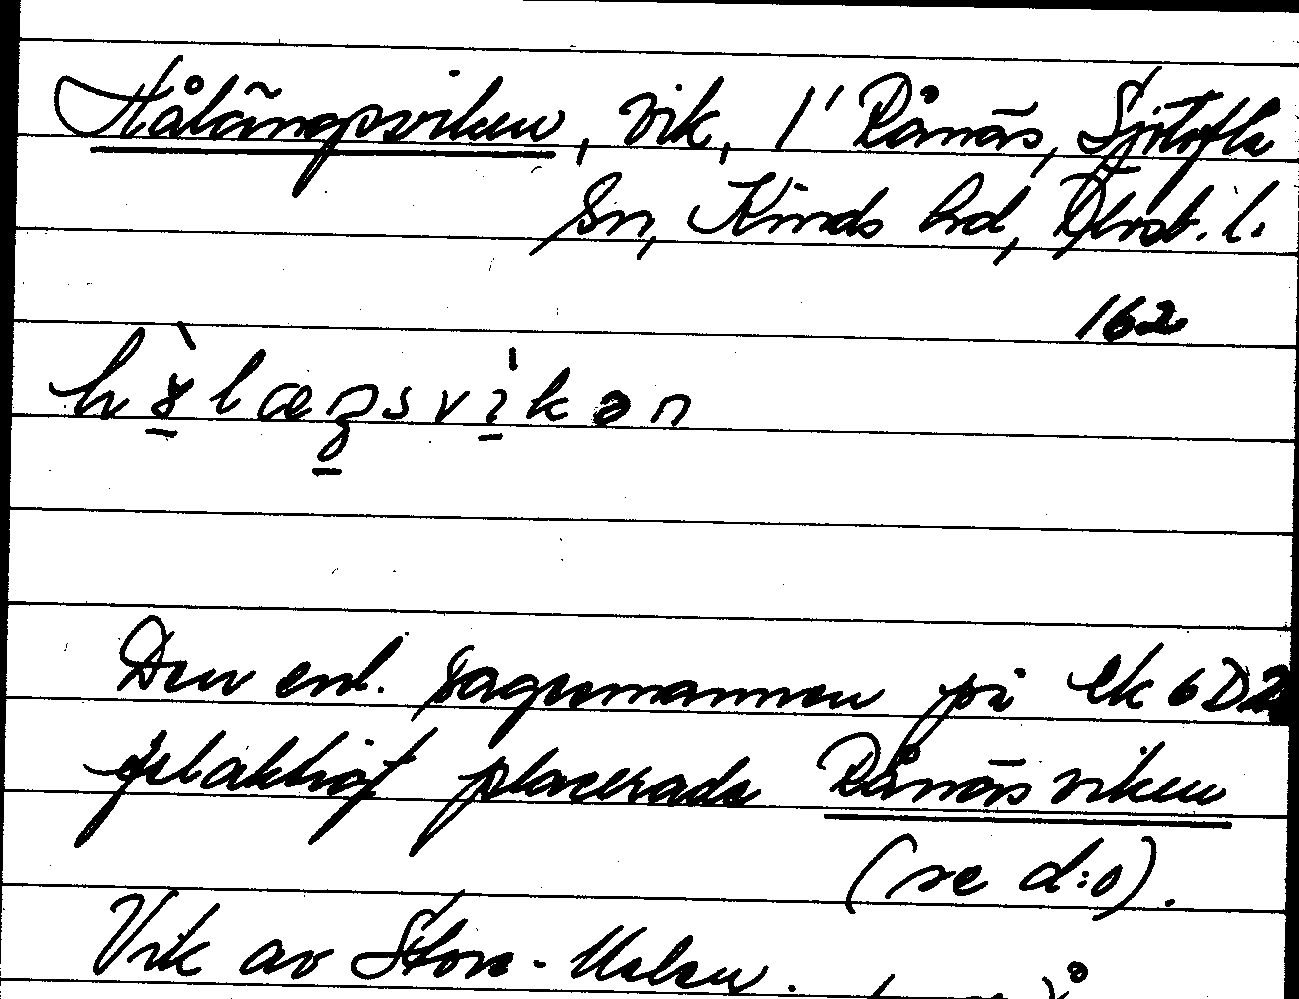 Hålängsviken, vik, i Rånäs, Sjötofta
sn, Kinds hd, Älvsb. l.
162
Den enl. sagesmannen på Ek 6D2
felaktigt placerade Rånäsviken
(se d:o).
Vik av Stora-Halsen.